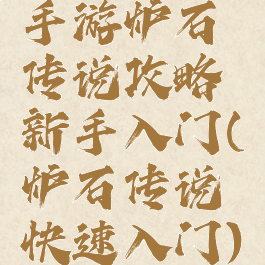 手游炉石
传说攻略
新手入门(
炉石传说
快速入门)